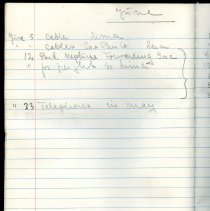 June
June 5 cable Lima
" " cables Sao Paulo
" 12 Paid Neptune Forwarding Inc
" for freight to
" 23 Telephones in May